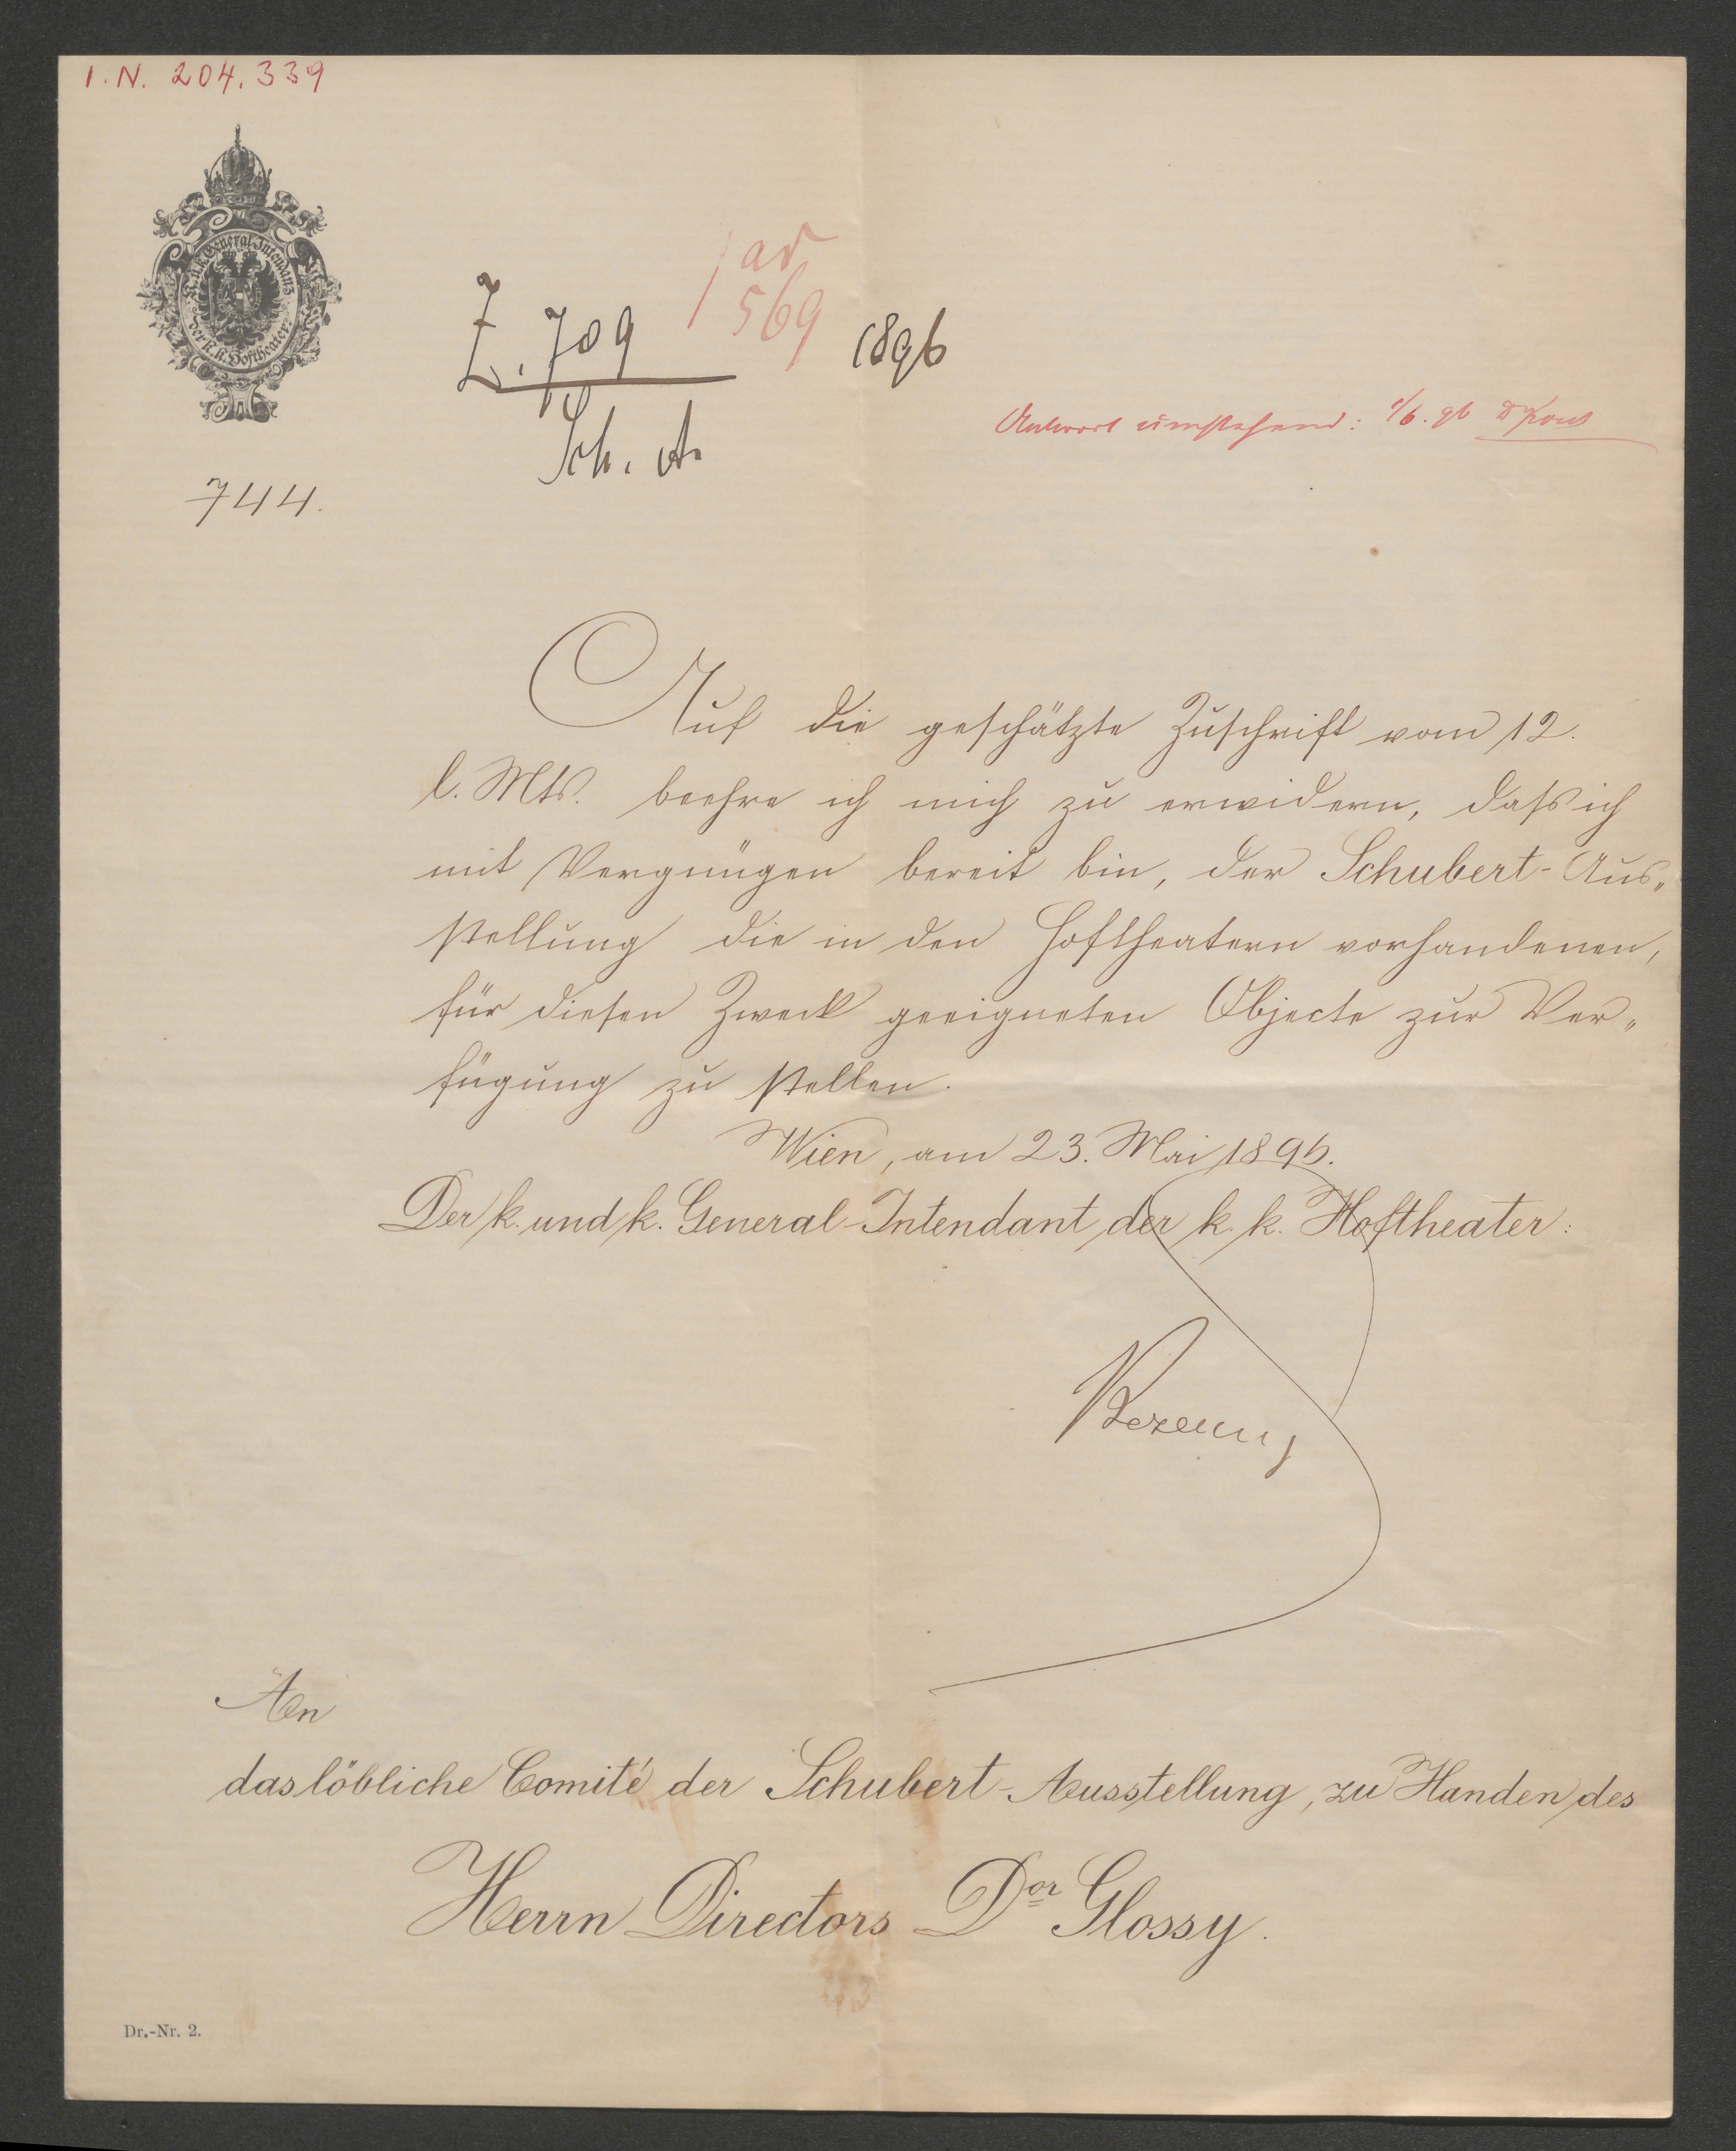 I. N. 204.339
K. u. K. General Intendanz
der K. K. Hoftheater
ad
569
Z. 709
1896
Sch. A.
Antwort umstehend: 1/6. 96 D Kont
744.
Auf die geschätzte Zuschrift vom 12.
l. Mts. beehre ich mich zu erwidern, daß ich
mit Vergnügen bereit bin, der Schubert-Aus„
stellung die in den Hoftheatern vorhandenen,
für diesen Zweck geeigneten Objecte zur Ver„
fügung zu stellen.
Wien, am 23. Mai 1896.
Der k. und k. General-Intendant der k. k. Hoftheater:
Bezecny
An
das löbliche Comité der Schubert-Ausstellung, zu Handen des
Herrn Directors Dor Glossy.
Dr.-Nr. 2.